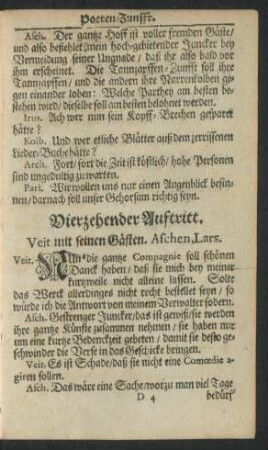 Poeten-Zunfft.
Asch. Der gantze Hoff ist voller fremden Gäste/
und also befiehlet mein hoch-gebietender Juncker bey
Vermeidung seiner Ungnade / daß ihr also bald vor
ihm erscheinet. Die Tannzapffen-Zunfft soll ihre
Tannzapffen/ und die andern ihre Narrenkolben ge-
gen einander loben: Welche Parthey am besten be-
stehen wird/ dieselbe soll am besten belohnet werden.
Irus. Ach wer nun sein Kopff-Brechen gesparet
hätte?
Kolb. Und wer etliche Blätter auß dem zerrissenen
Lieder-Buche hätte?
Arch. Fort/ fort die Zeit ist köstlich/ hohe Personen
sind ungedultig zu warten.
Part. Wir wollen uns nur einen Augenblick besin-
nen/ darnach soll unser Gehorsam richtig seyn.
Vierzehender Aufftritt.
Veit mit seinen Gästen. Aschen, Lars.
Veit. NUn die gantze Compagnie soll schönen
Danck haben/ daß sie mich bey meiner
kurzweile nicht alleine lassen. Solte
das Werck allerdinges nicht recht bestellet seyn / so
würde ich die Antwort von meinem Verwalter fodern.
Asch. Gestrenger Juncker/ das ist gewiß/ sie werden
ihre gantze Künste zusammen nehmen / sie haben nur
um eine kurtze Bedenckzeit gebeten / damit sie desto ge-
schwinder die Verse in das Geschicke bringen.
Veit. Es ist Schade/ daß sie nicht eine Comœdie a-
giren sollen.
Asch. Das wäre eine Sache/ worzu man viel Tage
D 4 bedürf-